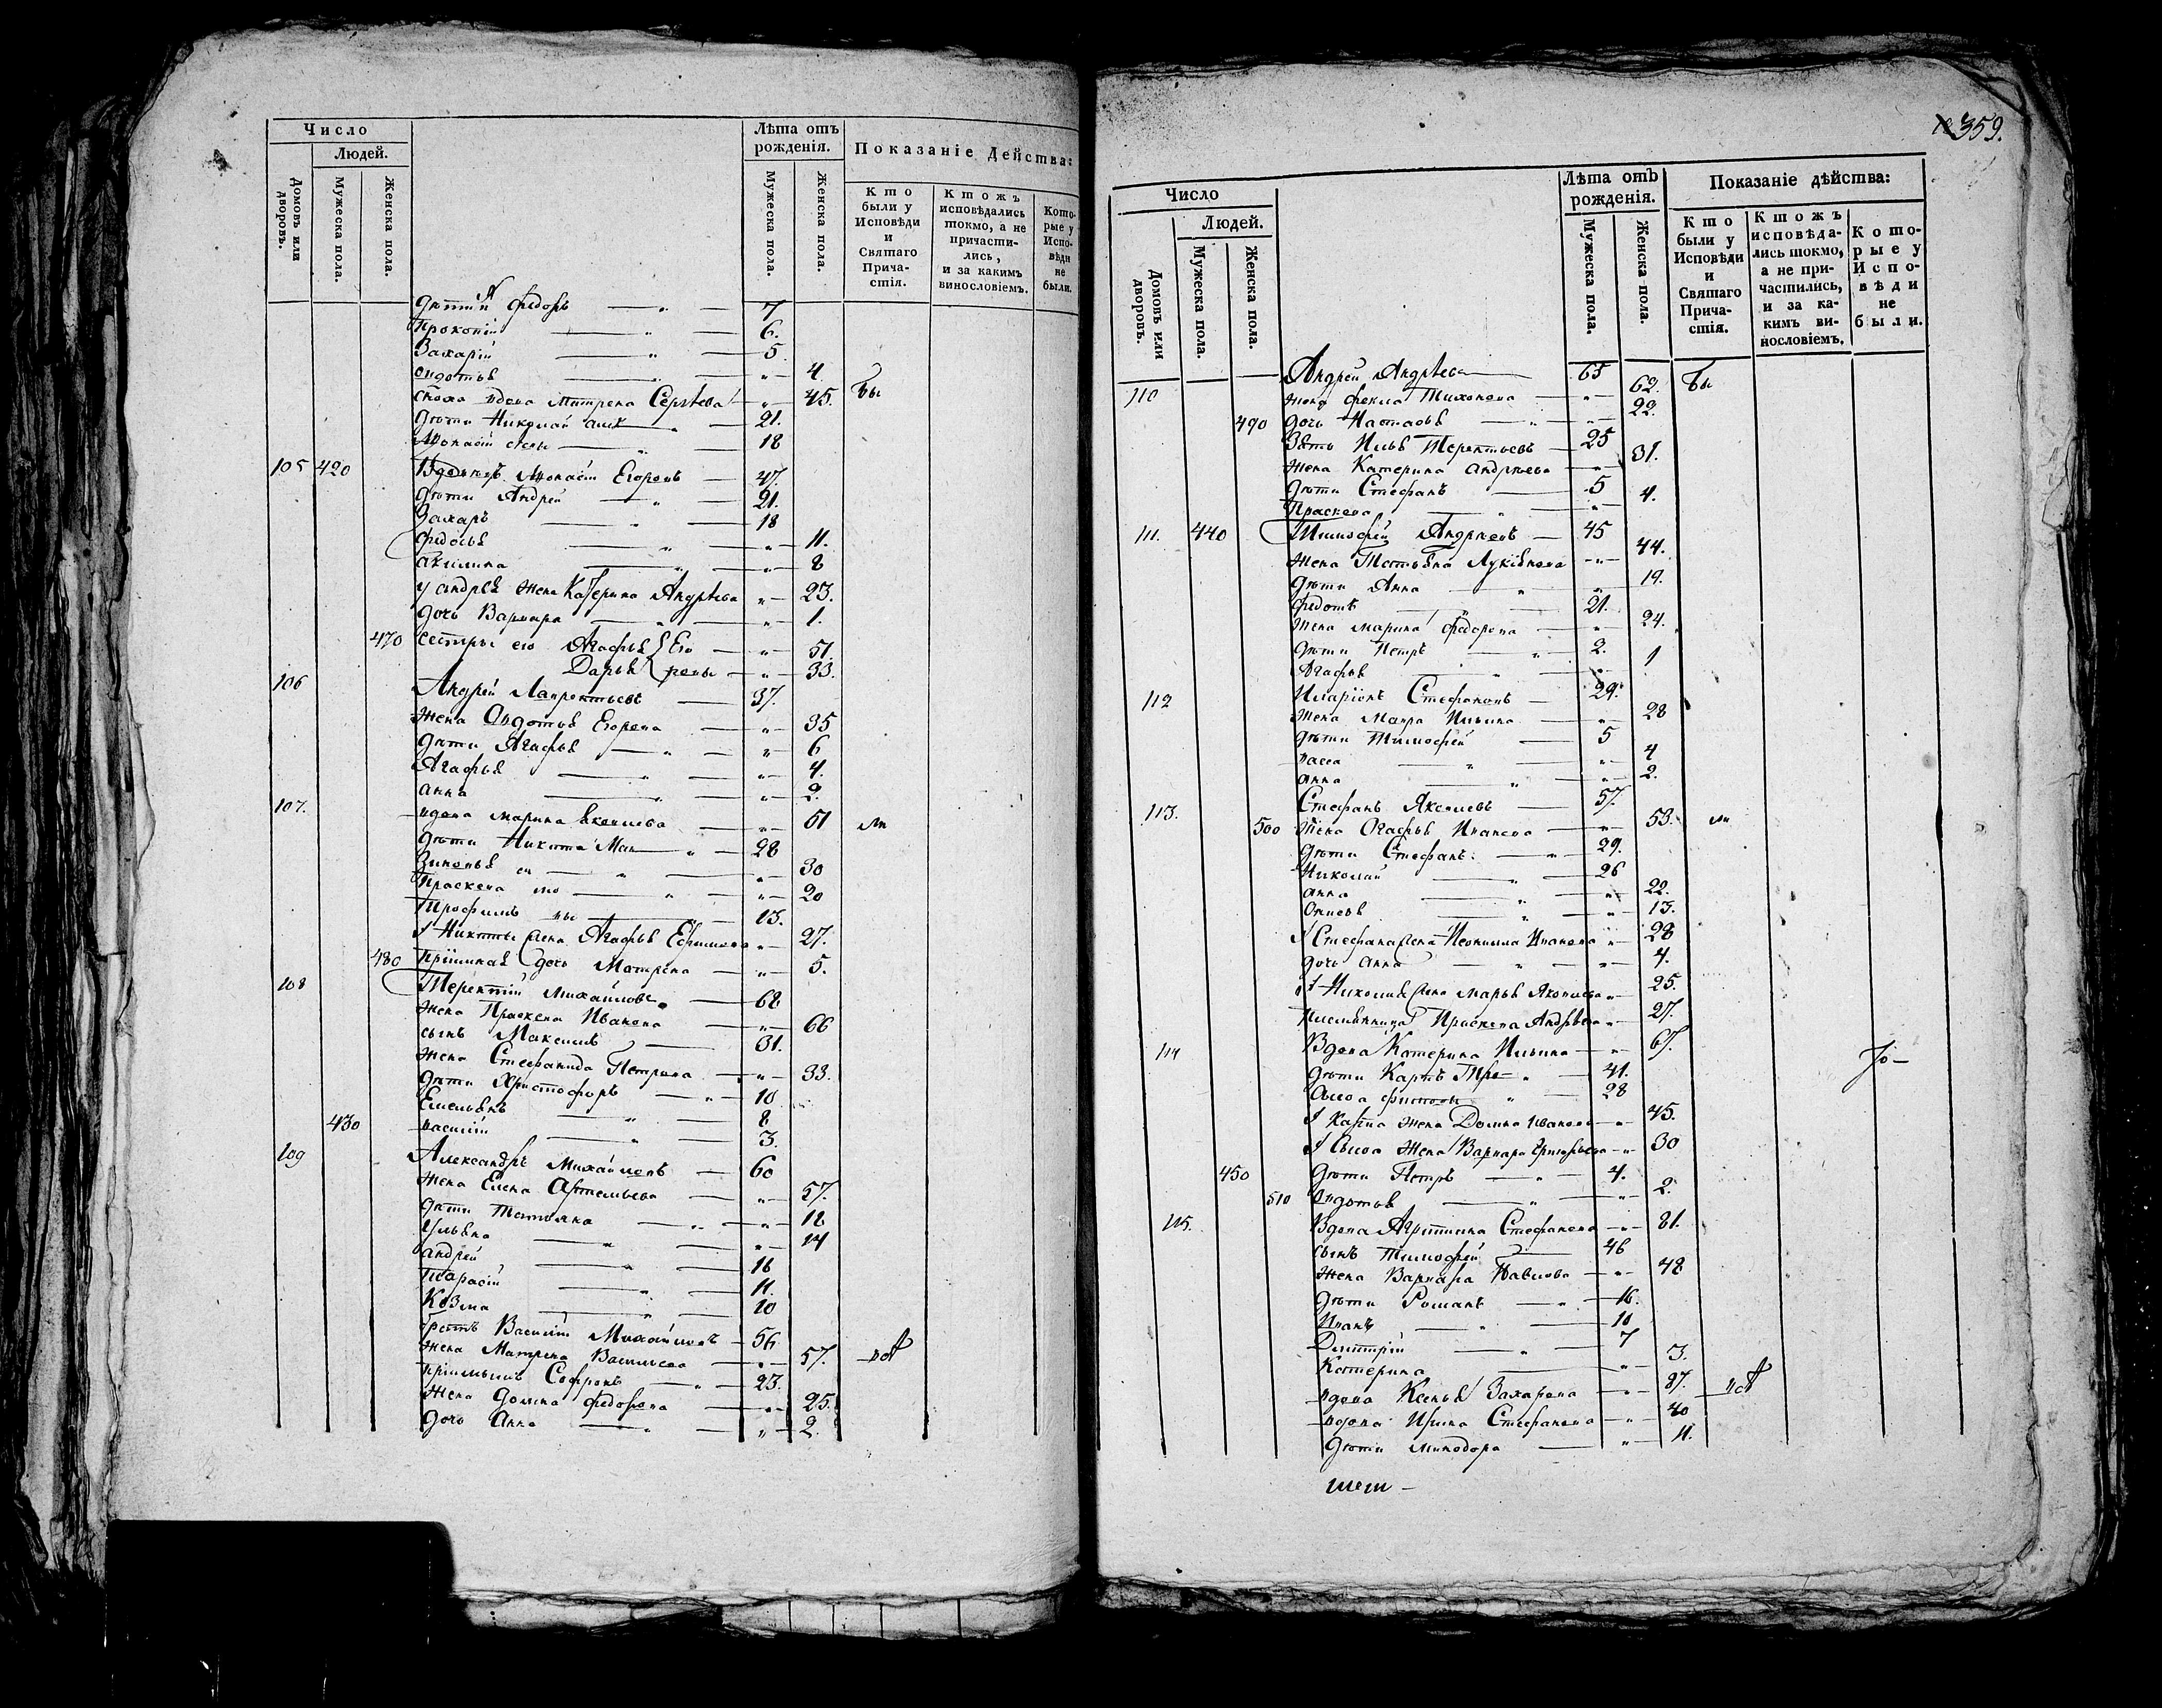 Число
Людей.
Домовъ или дворовъ.
Мужеска пола.
Женска пола.
Лѣта отъ рожденія.
Мужеска пола.
Женска пола.
Показаніе Действа:
Кто были у Исповѣди и Святаго Причастія.
Ктожъ исповѣдались токмо, а не причастились, и за какимъ винословіемъ.
Которые у Исповѣди не были.
дѣти Федоръ — „ — 7
Прокопій — „ — 6.
Захарій — „ — 5
Овдотья — „ — 4
вдова Матрена Сергѣева „ 45. бы
дѣти Николай „ 21.
18
105 420 Вдовецъ Егоровъ — 47.
дѣти Андрей — „ — 21.
Захаръ — „ — 18
Федосья — „ — 11.
Акилина — „ — 8
у Андрея жена Катерина Андрѣева „ 23.
дочь Варвара — „ — 1.
470 сестры его Агафья Его — „ — 51
Дарья ровы — „ — 33.
106 Андрей Лаврентьевъ — 37.
жена Овдотья Егорова — „ — 35
дѣти Агафья — „ — 6
Агафья — „ — 4.
анна — „ — 2.
107. вдова марина Яковлева — „ — 51 ли
дѣти Никита — „ — 28
Зиновья — „ — 30
Праскева — „ — 20
Трофимъ — 13.
У Никиты жена Агафья Ефимова „ 27.
480 дочь Матрена — „ — 5.
108 Терентій Михайловъ — 68
жена Праскева Иванова — „ — 66
сынъ Максимъ — 31.
жена Стефанида Петрова — „ — 33.
дѣти Христофоръ — „ — 10
Емельянъ — „ — 8
430 василій — „ — 3.
109 Александръ Михайловъ — 60
жена Елена Артемьева — „ — 57.
дѣти Татьяна — „ — 18
Ульяна — „ — 14
андрей — „ — 16
Тарасій — „ — 11.
Козма — „ — 10
братъ Василій Михайловъ — 56
жена Матрена Васильева — „ — 57.
пріимышъ Софронъ — „ — 23.
жена Домна Федорова — „ — 25.
дочь Анна — „ — 2.
359.
Число
Людей.
Домовъ или дворовъ.
Мужеска пола.
Женска пола.
Лѣта отъ рожденія.
Мужеска пола.
Женска пола.
Показаніе дѣйства:
Кто были у Исповѣди и Святаго Причастія.
Ктожъ исповѣдались токмо, а не причастились, и за какимъ винословіемъ.
Которые у Исповѣди не были.
110 Андрей Андрѣевъ — 65 бы
жена Фекла Тихонова — „ — 62.
490 дочь Настасья — „ — 22.
Зять Илья Терентьевъ — 25
жена Катерина Андрѣева — „ — 31.
дѣти Стефанъ — 5
Праскева — „ — 4.
111. 440 Тимофей Андреевъ — 45
жена Татьяна Лукіянова — „ — 44.
дѣти Анна — „ — 19.
Федотъ — „ — 21.
жена марина Федорова — „ — 24.
дѣти Петръ — „ — 2.
Агафья — „ — 1
112 Иларіонъ Стефановъ — 29.
жена Мавра Ильина — „ — 28
дѣти Тимофей — 5
васса — „ — 4
анна — „ — 2.
113. Стефанъ Яковлевъ — 57.
500 жена Огафья Иванова — „ — 53. ли
дѣти Стефанъ — „ — 29.
Николай — „ — 26
анна — „ — 22.
13.
У Стефана жена Неонилла Иванова „ 28
дочь анна — „ — 4.
У Николая жена Марья Яковлева „ 25.
племянница Праскева Андрѣева „ 27.
114 Вдова Катерина Ильина — „ — 67.
дѣти Карпъ — „ — 41.
„ 28
У Карпа жена Домна Иванова — „ 45.
жена Варвара Григорьева „ 30
450 дѣти Петръ — „ — 4.
510 Овдотья — „ — 2.
115. Вдова Агриппина Стефанова — „ — 81.
сынъ Тимофей — 46
жена Варвара Павлова — „ — 48
дѣти Романъ — „ — 16.
Иванъ — „ — 10
Дмитрій — „ — 7
Катерина — „ — 3.
вдова Ксенья Захарова — „ — 87.
вдова Ирина Стефанова — „ — 40
дѣти минодора — „ — 11.